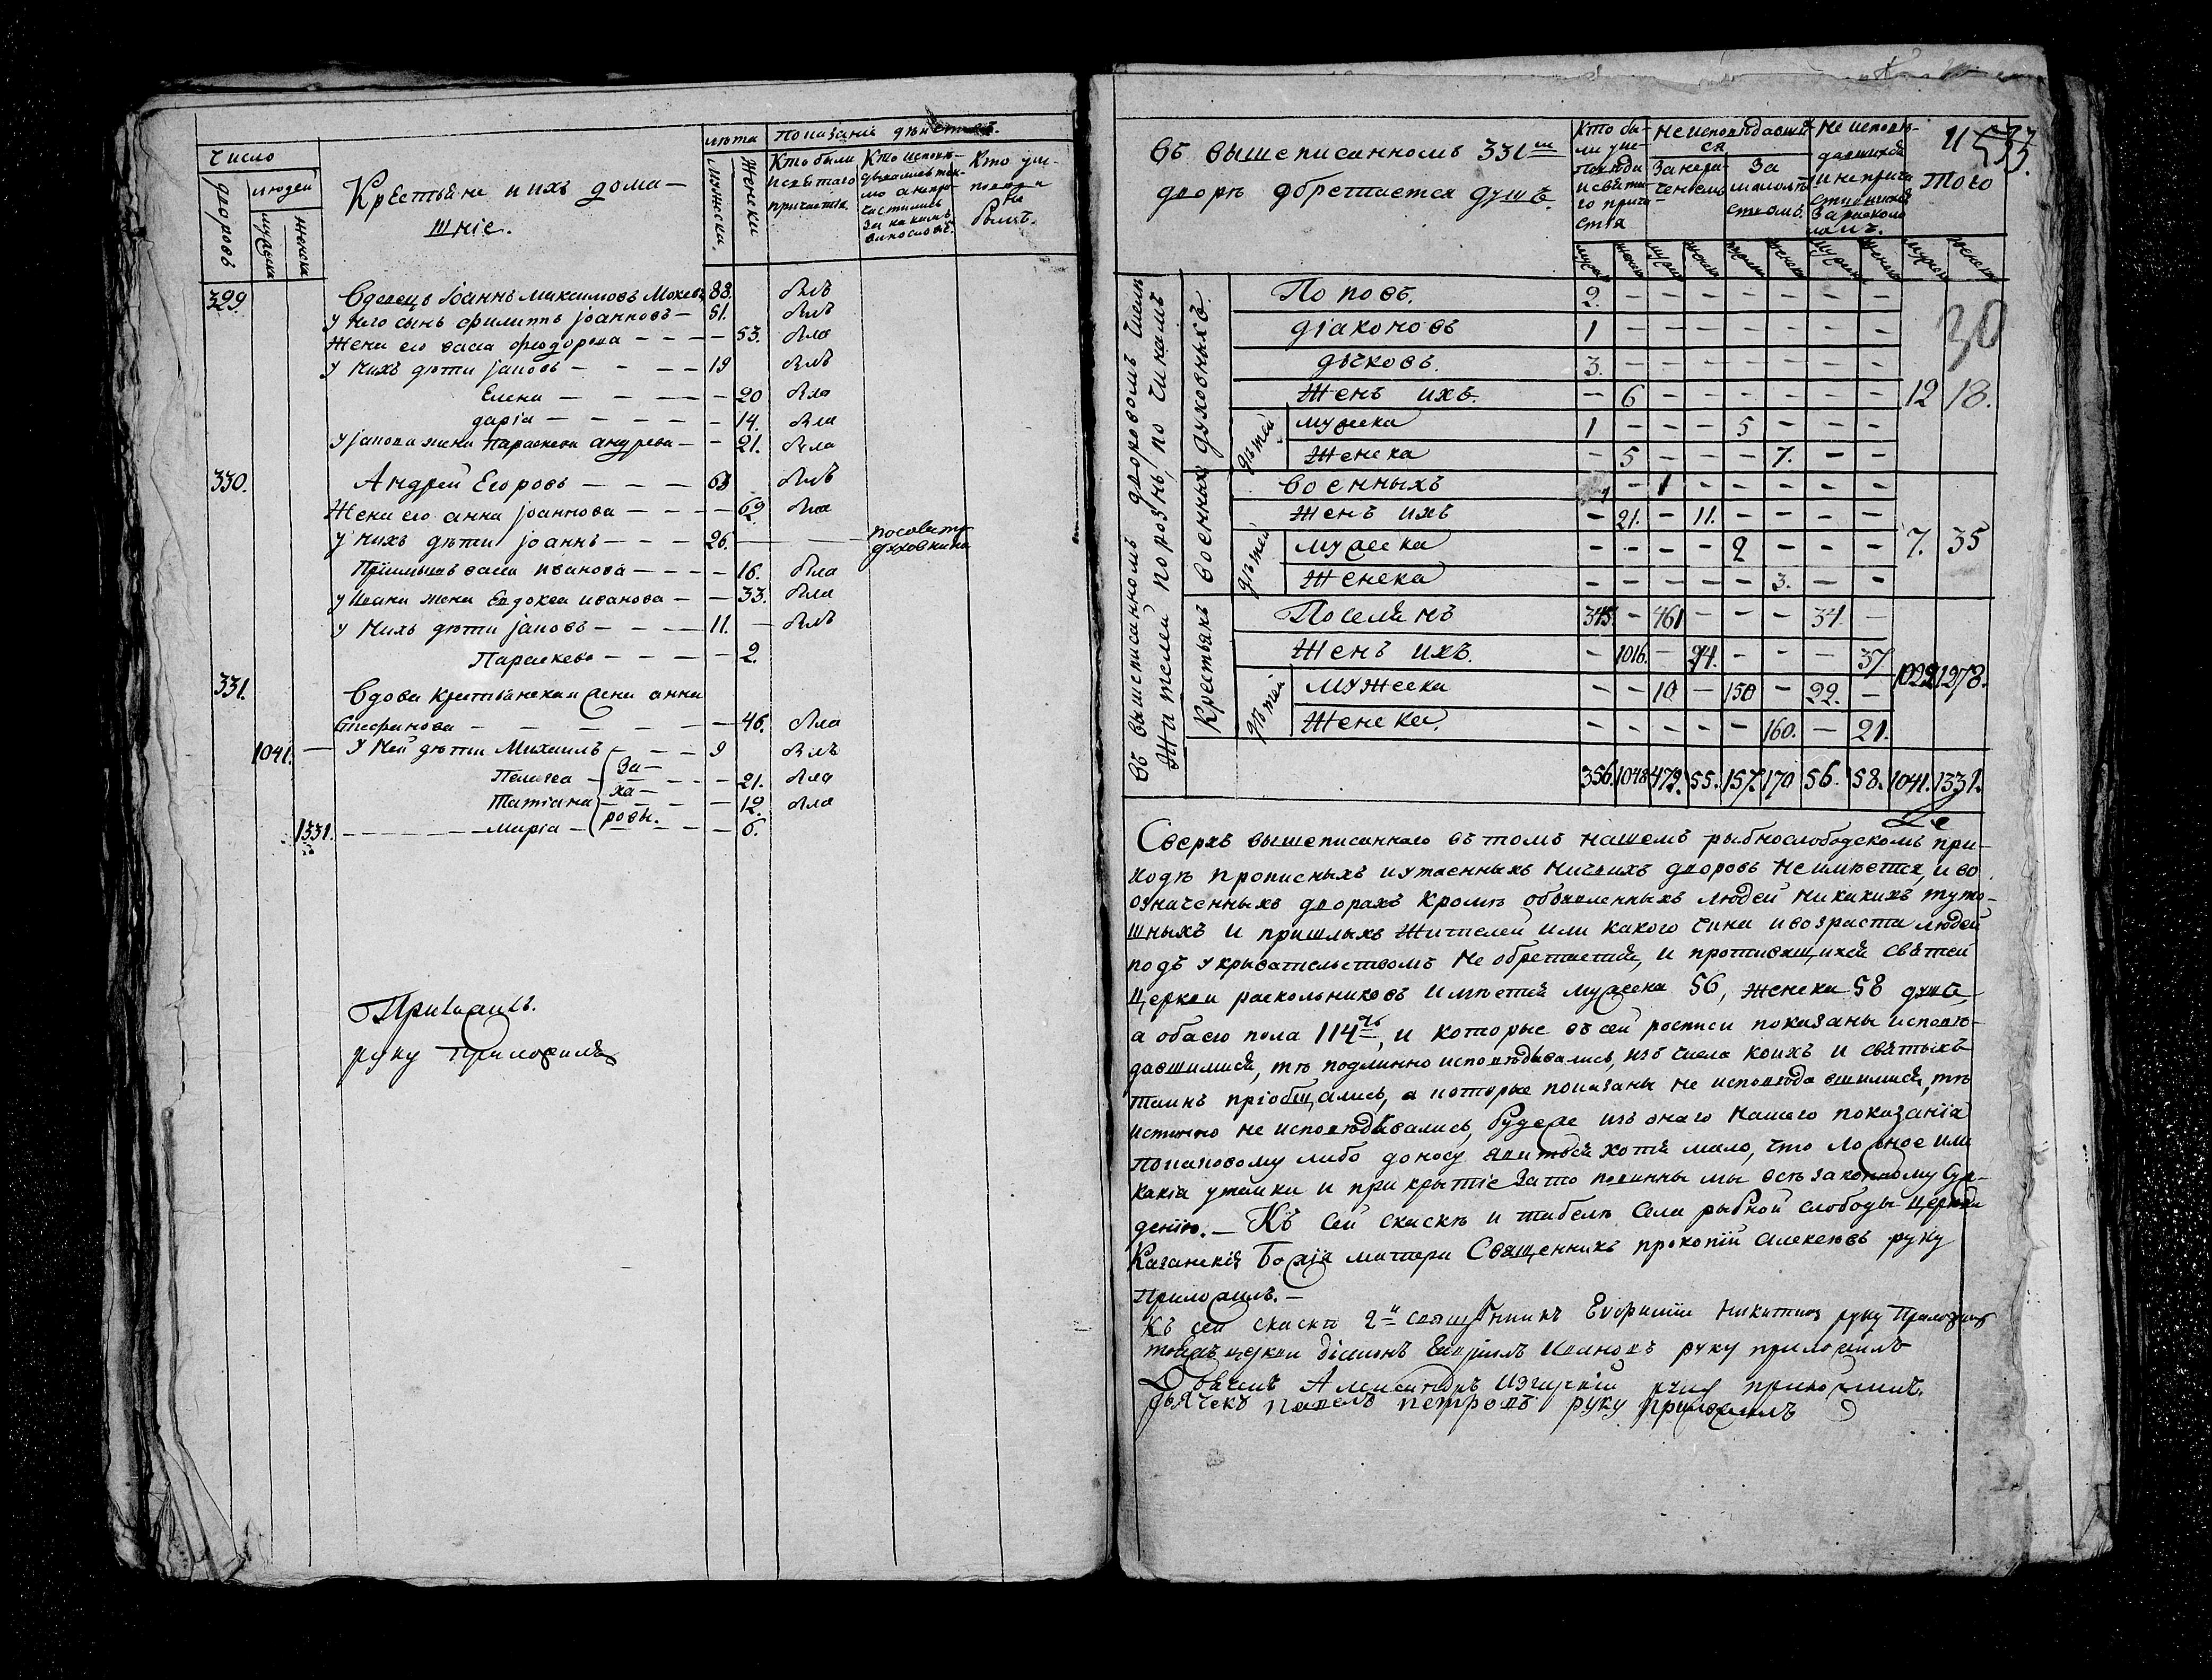 число
дворовъ
людей
мужеска
женска
Крестьяне и ихъ дома-
шніе.
лѣта
мужеска.
женски
Показаніе дѣйства.
Кто были у исповѣди и святаго причастія.
Кто исповѣ-
дывались ток-
мо а непри-
частились
за какимъ
винословіемъ.
Кто у ис-
повѣди
не
былъ.
329
Вдовецъ Іоаннъ Максимовъ 88. былъ
У него сынъ Филиппъ Іоанновъ — 51. былъ
Жена его Васса Феодорова — — — — 53. была
У нихъ дѣти Іаковъ — — — — 19 былъ
Елена — — — — — 20 была
Дарія — — — — — 14. была
У Іакова жена Параскева Андреева — — 21. была
330. Андрей Егоровъ — — — 63 былъ
Жена его Анна Іоаннова — — — — 62 была
У нихъ дѣти Іоаннъ — — — 26. — — — по совѣту
духовника
Васса Иванова — — — — 16. была
У Ивана жена Евдокеа Иванова — — 33. была
У нихъ дѣти Іаковъ — — — 11. — былъ
Параскева — — — — 2.
331. Вдова крестьянская жена Анна
Стефанова — — — — — — 46. была
1041. — У ней дѣти Михаилъ — — — 9 былъ
Пелагеа — За- — — — 21. была
Татіана — ха- — — — 12. была
1331. — — — — — Марія — ровы. — — — 6.
руку приложилъ
Въ вышеписанномъ 331 мъ
дворѣ обретается душъ.
Кто бы-
ли у ис-
повѣди
и святa-
го прича-
стія
Не исповѣдавши-
ся
За нера-
ченіемъ
За
малолѣт-
ствомъ.
Не исповѣ-
давшихся
и не прича-
стившихся
за раско-
ломъ.
Итого
533.
мужеска женска мужеска женска мужеска женска мужеска женска мужеска женска
Въ вышеписанномъ дворовомъ числѣ
жителей порознь, по чинамъ
духовныхъ.
Поповъ. 2. — — — — — — —
Діаконовъ 1 — — — — — — —
30
Дьчковъ. 3. — — — — — — —
Женъ ихъ. — 6 — — — — — — 12 18.
дѣтей
мужеска 1 — — — 5 — — —
Женска — 5 — — — 7. — —
военныхъ
Военныхъ — 1 — — — — —
Женъ ихъ — 21. — 11. — — — —
7. 35
дѣтей
мужеска — — — — 2 — — —
Женска — — — — — 3. — —
Крестьянъ
Поселянъ — 461 — — — 34. —
Женъ ихъ. — 1016. — — — — 37
1022 1278.
дѣтей
мужеска — — 10 — 150 — 22. —
Женска. — — — — — 160. — 21.
356. 1048 472. 55. 157. 170 56. 58. 1041. 1331.
Сверхъ вышеписаннаго въ томъ нашемъ рыбнослободскомъ при-
ходѣ прописныхъ и утаенныхъ ничьихъ дворовъ не имѣется, и во
означенныхъ дворахъ кромѣ объявленныхъ людей никакихъ туто-
шныхъ и пришлыхъ жителей или какого чина и возраста людей
подъ укрывательствомъ не обретается, и противящихся святей
церкви раскольниковъ имѣется мужеска 56, женска 58 душъ
а обоего пола 114, и которые въ сей росписи показаны исповѣ-
давшимися, тѣ подлинно исповѣдывались, изъ числа коихъ и святыхъ
таинъ пріобщались, а которые показаны не исповѣдавшимися, тѣ
истинно не исповѣдывались, будеже изъ онаго нашего показанія
по каковому либо доносу явится хотя мало, что ложное или
какіа утайки и прикрытіе за то повинны мы всѣ законному су-
денію. — Къ сей сказкѣ и табелѣ села рыбной слободы церкви
Казанскія Божія матери Священникъ Прокопій Алексѣевъ руку
приложилъ. —
Къ сей сказкѣ 2й священникъ Евфимій Никитинъ руку приложилъ
тояжъ церкви діаконъ Ивановъ руку приложилъ
Дьячекъ Александръ руку приложилъ.
Дьячекъ Павелъ Петровъ руку приложилъ